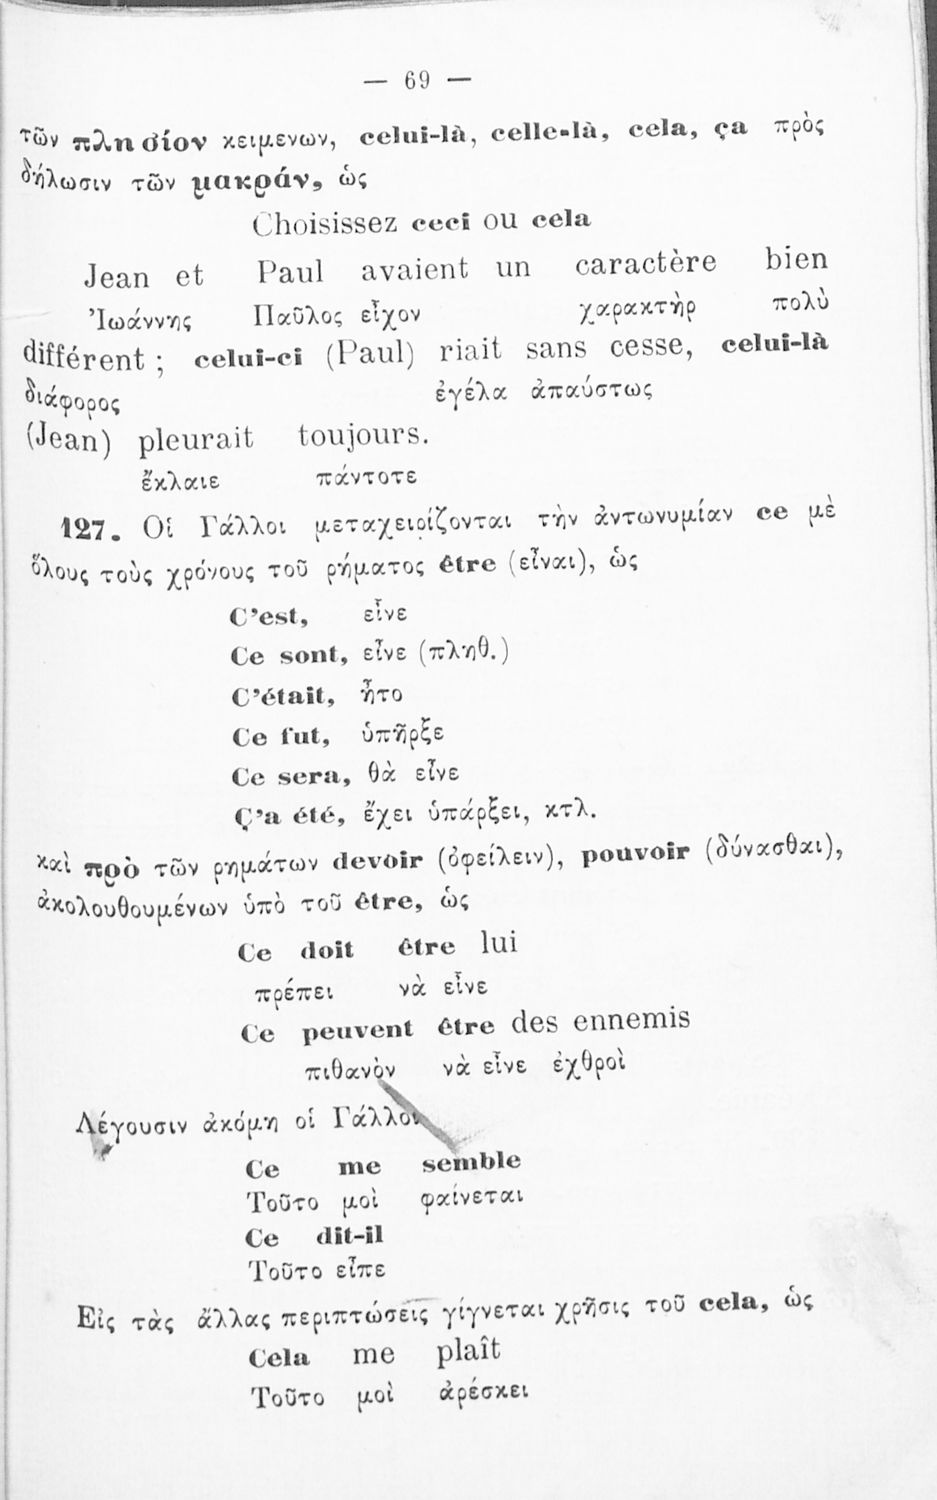 — 69 —
τῶν πλησίον κειμενων, celui-là, celle-là, cela, ça πρὸς
δήλωσιν τῶν μακράν, ὡς
Choisissez ceci ou cela
Jean et Paul avaient un caractère bien
Ἰωάννης Παῦλος εἶχον χαρακτὴρ πολὺ
différent ; celui-ci (Paul) riait sans cesse, celui-là
διάφορος ἐγέλα ἀπαύστως
(Jean) pleurait toujours.
ἔκλαιε πάντοτε
127. Οἱ Γάλλοι μεταχειρίζονται τὴν ἀντωνυμίαν ce μὲ
ὅλους τοὺς χρόνους τοῦ ρήματος être (εἶναι), ὡς
C’est, εἶνε
Ce sont, εἶνε (πληθ.)
C’était, ἦτο
Ce fut, ὑπῆρξε
Ce sera, θὰ εἶνε
Ç’a été, ἔχει ὑπάρξει, κτλ.
καὶ πρὸ τῶν ρημάτων devoir (ὀφείλειν), pouvoir (δύνασθαι),
ἀκολουθουμένων ὑπὸ τοῦ être, ὡς
Ce doit être lui
πρέπει νὰ εἶνε
Ce peuvent être des ennemis
πιθανὸν νὰ εἶνε ἐχθροὶ
Λέγουσιν ἀκόμη οἱ Γάλλοι
Ce me semble
Τοῦτο μοὶ φαίνεται
Ce dit-il
Τοῦτο εἶπε
Εἰς τὰς ἄλλας περιπτώσεις γίγνεται χρῆσις τοῦ cela, ὡς
Cela me plaît
Τοῦτο μοὶ ἀρέσκει